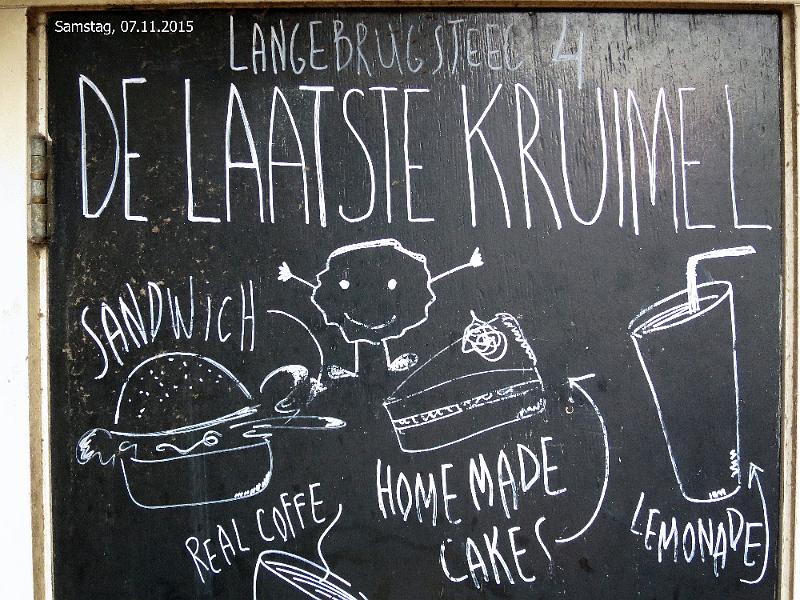 Samstag, 07.11.2015
LANGEBRUGSTEEG 4
DE LAATSTE KRUIMEL
SANDWICH
HOME MADE
CAKES
REAL COFFE
LEMONADE